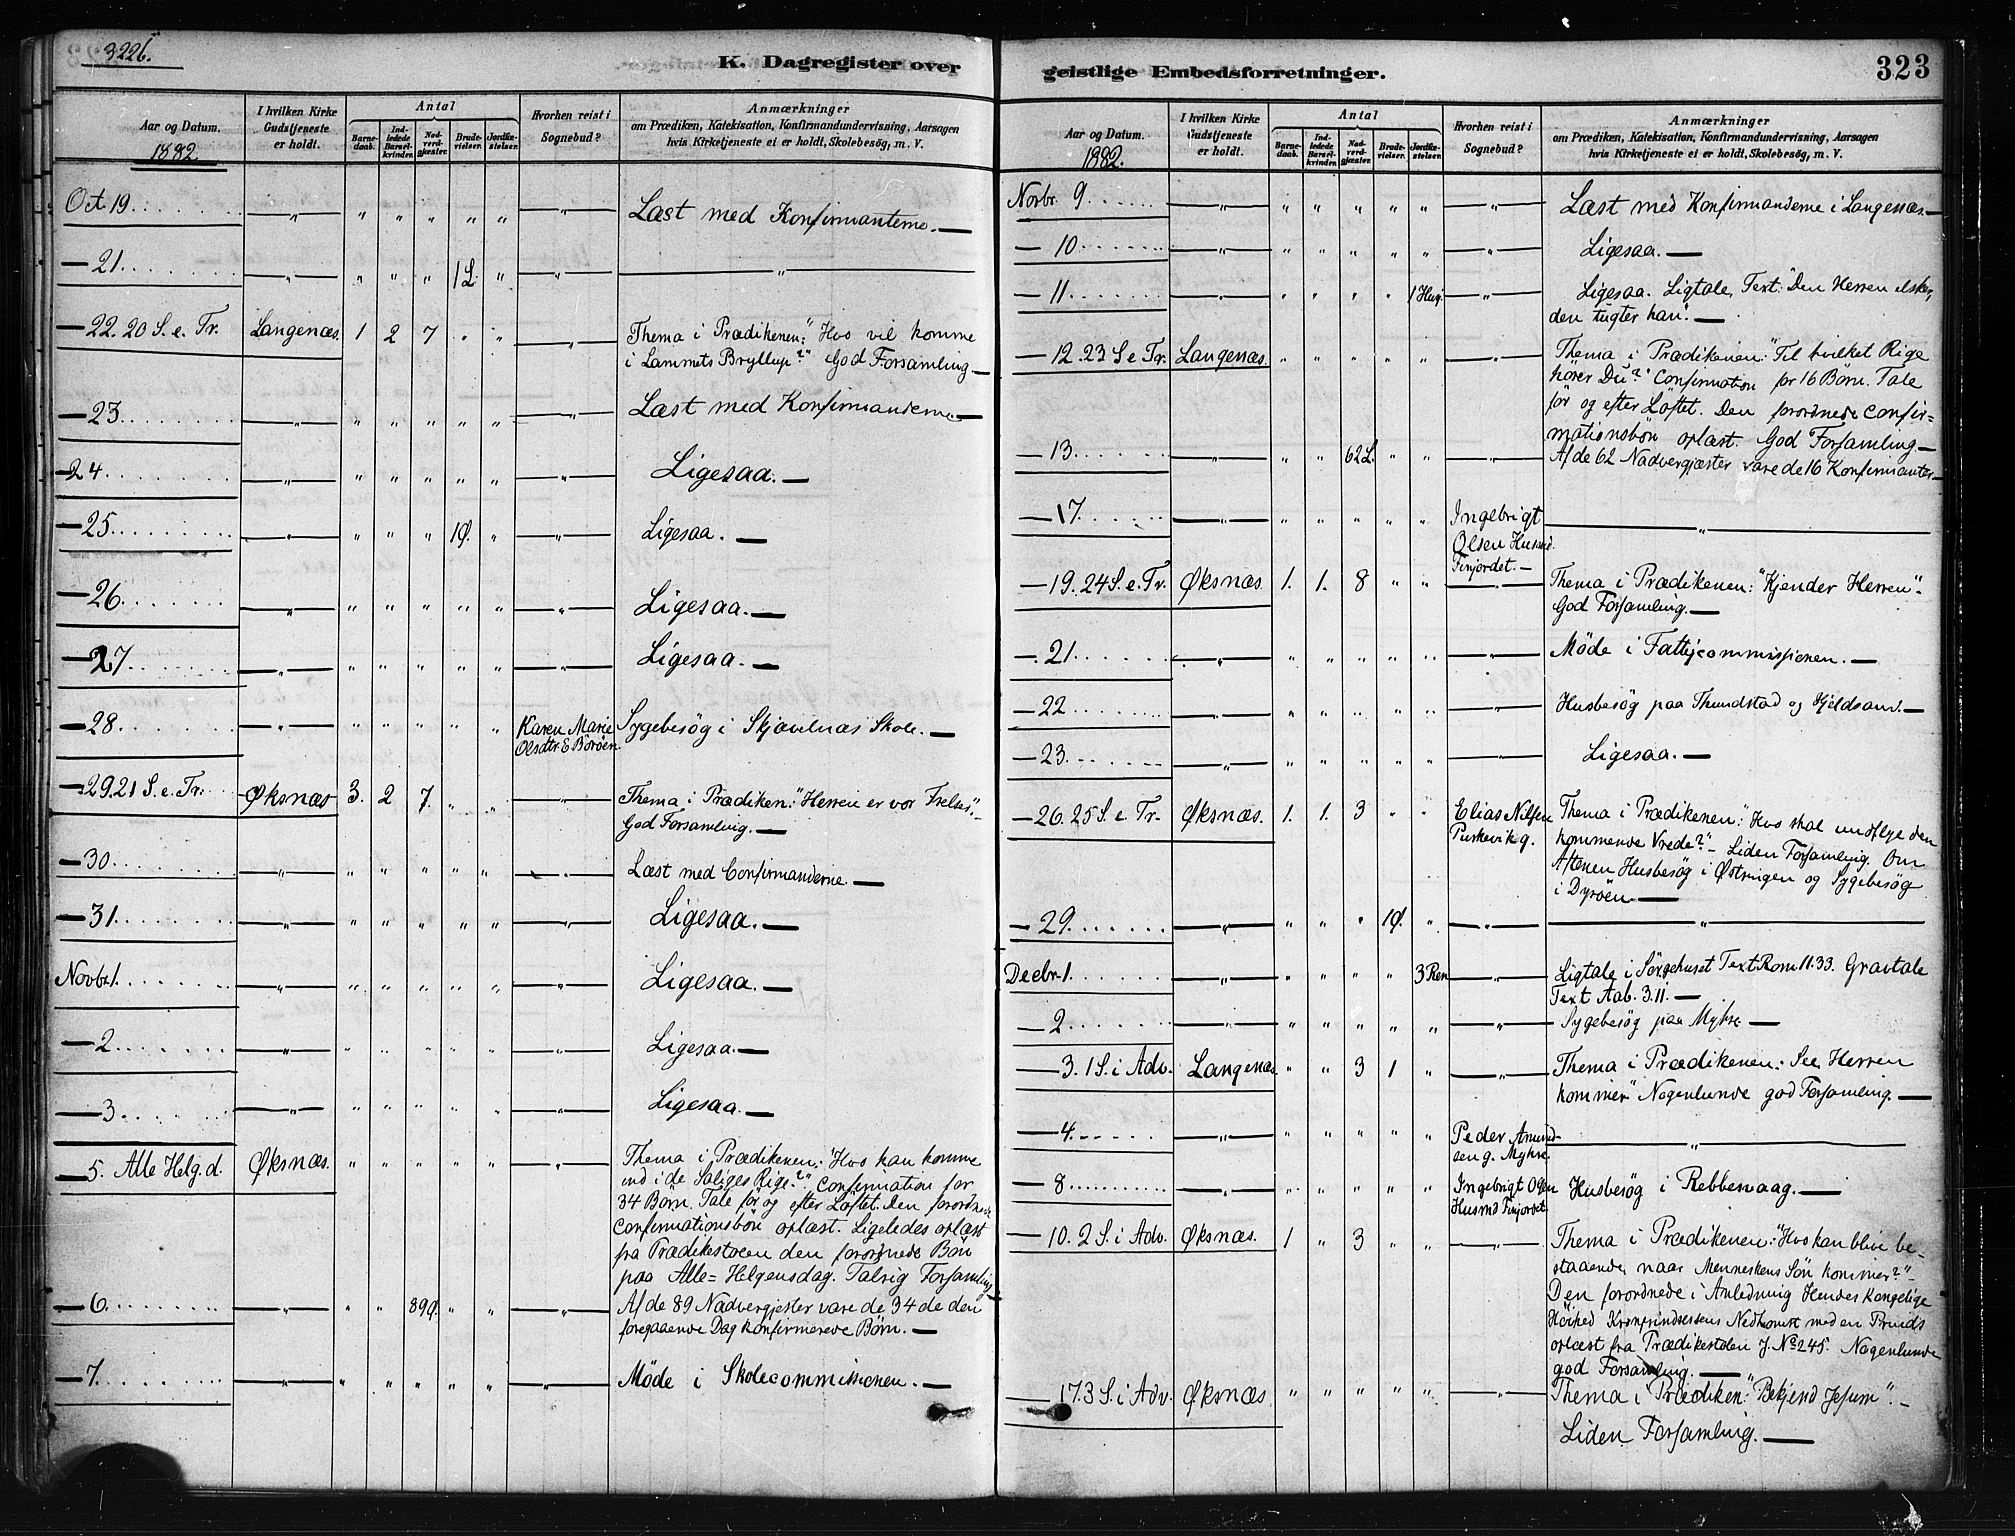 322b.
K. Dagregister over
Aar og Datum.
1882
I hvilken Kirke Gudstjeneste er holdt.
Antal
Barnedaab.
Indledede Barselkvinder.
Nadverdgjæster.
Brudevielser.
Jordfæstelser.
Hvorhen reist i Sognebud?
Anmærkninger
om Prædiken, Katekisation, Konfirmandundervisning, Aarsagen
hvis Kirketjeneste ei er holdt, Skolebesøg, m. V.
Oct. 19. — " " " " " — Læst med Konfirmanterne. —
— 21. — " " " 1 L. " — "
— 22. 20 S. e. Tr. Langenæs. 1 2 7 " " — Thema i Prædikenen: "Hvo vil komme
i Lammets Bryllup?" God Forsamling —
— 23 — " " " " " — Læst med Konfirmanderne —
— 24 — " " " " " — Ligesaa. —
— 25. — " " " 1Ø. " — Ligesaa. —
— 26. — " " " " " — Ligesaa. —
— 27. — " " " " " — Ligesaa. —
— 28 — " " " " " Karen Marie Sygebesøg i Skjævelnæs Skole. —
Olsdtr. E Börøen
— 29. 21 S. e. Tr. Øksnæs 3. 2 7. " " — Thema i Prædiken: "Herren er vor Frelse".
God Forsamling. —
— 30. — " " " " " — Læst med Confirmanderne. —
— 31. — " " " " " — Ligesaa. —
Novbr 1. — " " " " " — Ligesaa. —
— 2 — " " " " " — Ligesaa. —
— 3 — " " " " " — Ligesaa. —
— 5. Alle Helg. d. Øksnæs. " " " " " — Thema i Prædikenen: "Hvo kan komme
ind i de Saliges Rige?" Confirmation for
34 Børn. Tale før og efter Løftet. Den forordnede
Confirmationsbön oplæst. Ligeledes oplæst
fra Prædikestolen den forordnede Bön
paa Alle=Helgensdag. Talrig Forsamling
— 6. — " " 89Ø. " " — Af de 89 Nadvergjester vare de 34 de den
foregaaende Dag konfirmerede Børn. —
— 7. — " " " " " — Møde i Skolecommissionen. —
geistlige Embedsforretninger.
323
Aar og Datum.
1882.
I hvilken Kirke Gudstjeneste er holdt.
Antal
Barnedaab.
Indledede Barselkvinder.
Nadverdgjæster.
Brudevielser.
Jordfæstelser.
Hvorhen reist i Sognebud?
Anmærkninger
om Prædiken, Katekisation, Konfirmandundervisning, Aarsagen
hvis Kirketjeneste ei er holdt, Skolebesøg, m. V.
Novbr. 9. — " " " " " — Læst med Konfirmanderne i Langenæs. —
— 10. — " " " " " — Ligesaa. —
— 11. — " " " " 1 — Ligesaa. Ligtale, Text: "Den Herren elsker,
den tugter han". —
— 12. 23 S e Tr. Langenæs. " " " " " — Thema i Prædikenen: "Til hvilket Rige
hører Du?" Confirmation for 16 Børn. Tale
før og efter Løftet. Den forordnede Confir=
mationsbön oplæst. God Forsamling —
— 13. — " " 62 L. " " — Af de 62 Nadvergjæster vare de 16 Konfirmanter —
— 17. — " " " " " Ingebrigt "
Olsen Husmd.
Finjordet. —
— 19. 24 S. e. Tr. Øksnæs. 1. 1. 8 " " — Thema i Prædikenen: "Kjender Herren".
God Forsamling. —
— 21. — " " " " " — Møde i Fattigcommissionen. —
— 22 — " " " " " — Husbesøg paa Thundstad og Kjeldsand. —
— 23. — " " " " " — Ligesaa. —
— 26. 25 S. e Tr. Øksnæs. 1. 1. 3 " " Elias Nilsen Thema i Prædikenen: "Hvo skal undflye den
Purkevik g. kommende Vrede?" — Liden Forsamling. Om
Aftenen Husbesøg i Østringen og Sygebesøg
i Dyröen. —
— 29. — " " " 1Ø. " — "
Decbr. 1. — " " " " 3 Ren — Ligtale i Sørgehuset Text Rom. 11.33. Gravtale
Text Aab. 3.11. —
— 2. — " " " " " — Sygebesøg paa Myhre —
— 3. 1 S. i Adv. Langenæs " " 3 1 " — Thema i Prædikenen: See Herren
kommer" Nogenlunde god Forsamling. —
— 4. — " " " " " Peder Amund- "
sen g. Myhre
— 8 — " " " " " Ingebrigt Olsen Husbesøg i Rebbenaag. —
Husmd Finjordet
— 10. 2 S. i Adv. Øksnæs. 1 " 3 " " — Thema i Prædikenen: "Hvo kan blive be-
staaende, naar Menneskens Sön kommer?" —
Den forordnede i Anledning Hendes Kongelige
Höihed Kronprindsessens Nedkomst med en Prinds
oplæst fra Prædikestolen J. No 245. Nogenlunde
god Forsamling. —
— 17 3 S. i Adv. Øksnæs " " " " " — Thema i Prædiken: "Bekjend Jesum". —
Liden Forsamling. —